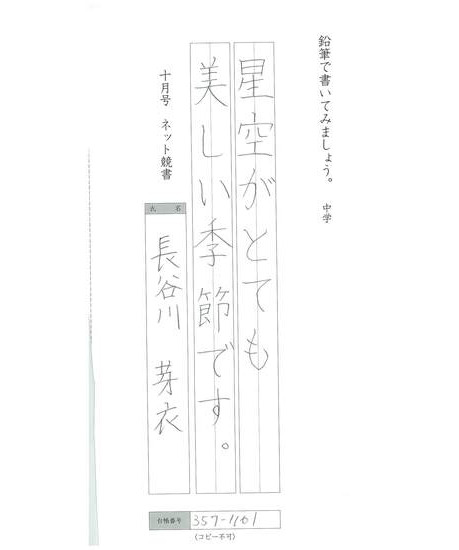 鉛筆で書いてみましょう。 中学
星空がとても
美しい季節です。
十月号 ネット競書
氏名
長谷川 芽衣
台帳番号 357-1101
(コピー不可)